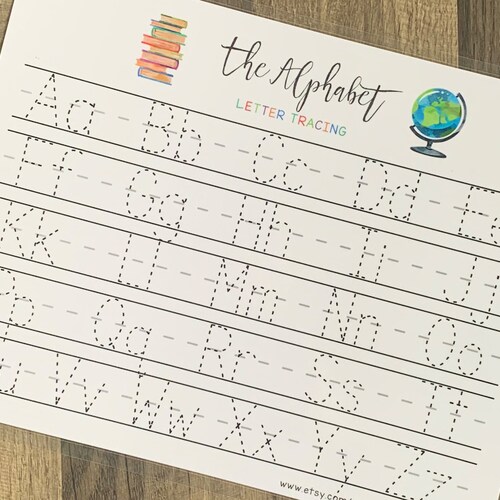 the Alphabet
LETTER TRACING
Aa Bb Cc Dd E
Ff Gg Hh Ii Jj
Kk Ll Mm Nn Oo
Pp Qq Rr Ss Tt
u Vv Ww Xx Yy Zz
www.etsy.com